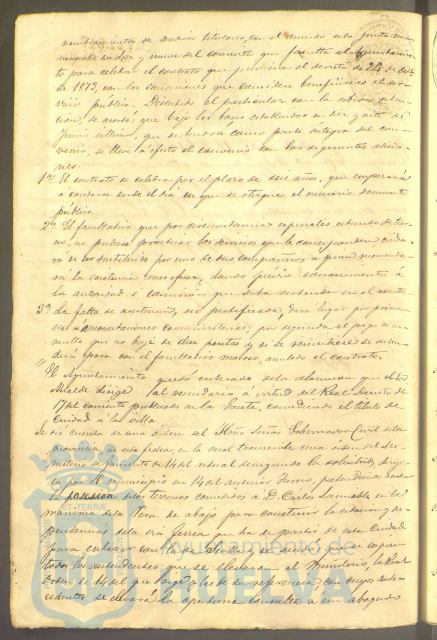 nombramientos de medicos titulares, con el acuerdo de la Junta muni-
cipal en doce y nueve del corriente que faculta al Ayuntamien-
to para celebrar el contrato que previene el decreto de 24 de Oct.
de 1873, con las condiciones que considere beneficiosas al ser-
vicio público. Discutido el particular con la
se acordó que bajo las bases establecidas en diez y siete de
Junio último, que se tendrá como parte integra del con-
venio, se lleve á efecto el convenio con las siguientes adicio-
nes.
1ª El contrato se celebra por el plazo de dos años, que empezarán
á contarse desde el dia en que se otorgue el necesario documento
público.
2ª El facultativo que por circunstancias especiales
no pudiese practicar los servicios que le corresponden cuida-
rá de ser sustituido por uno de sus compañeros
dando previo conocimiento á
la autoridad ó comision que deba
3ª La falta de asistencia, no justificada, dará lugar por primera
vez á amonestaciones por segunda al pago de una
multa que no baje de diez pesetas y si de reincidiere se
para con el facultativo moroso, anulado el contrato.
El Ayuntamiento quedó enterado de la alocucion que el Sr.
Alcalde dirige al vecindario á virtud del Real decreto de
17 del corriente publicado en la Gaceta, concediendo el título de
Ciudad á la villa.
Se dió cuenta de una orden del Iltmo Señor Gobernador Civil de la
provincia de esta fecha, en la cual transcribe una orden del Mi-
nisterio de Fomento de 14 del actual denegando la solicitud dirigi-
da por el municipio en 14 de anterior Junio,
la posesion de los terrenos concedidos á D. Carlos Lamiable en la
marisma de la Vera de abajo para construir la estacion y de-
pendencias de la via ferrea que ha de partir de esta Ciudad
para enlazar con la de Sevilla; y se acordó que se copien
todos los antecedentes que se elevaron al Ministerio, la Real
orden de 14 del que rige y las de su referencia, con cuyos ante-
cedentes se elevará la oportuna consulta á un abogado
ET TERRA
Ayuntamiento de
HUELVA